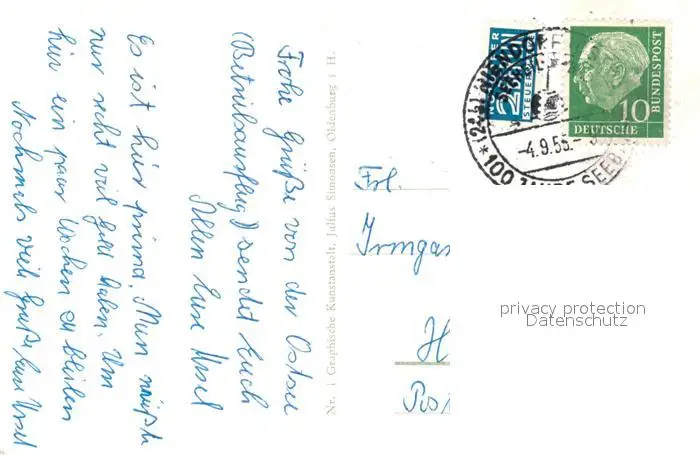 Frohe Grüße von der Ostsee
(Betriebsausflug) sendet Euch
Allen Eure Ursel
Es ist hier prima, Man müßte
nur recht viel Geld haben, um
hier ein paar Wochen zu bleiben
Nochmals viele Grüße Eure Ursel
Nr. 1 Graphische Kunstanstalt, Julius Simonsen, Oldenburg i. H.
Frl.
Irmga
H
Post
2
STEUER
10
DEUTSCHE
BUNDESPOST
(24
-4.9.55.-
* 100 JAHRE SEEB
privacy protection
Datenschutz